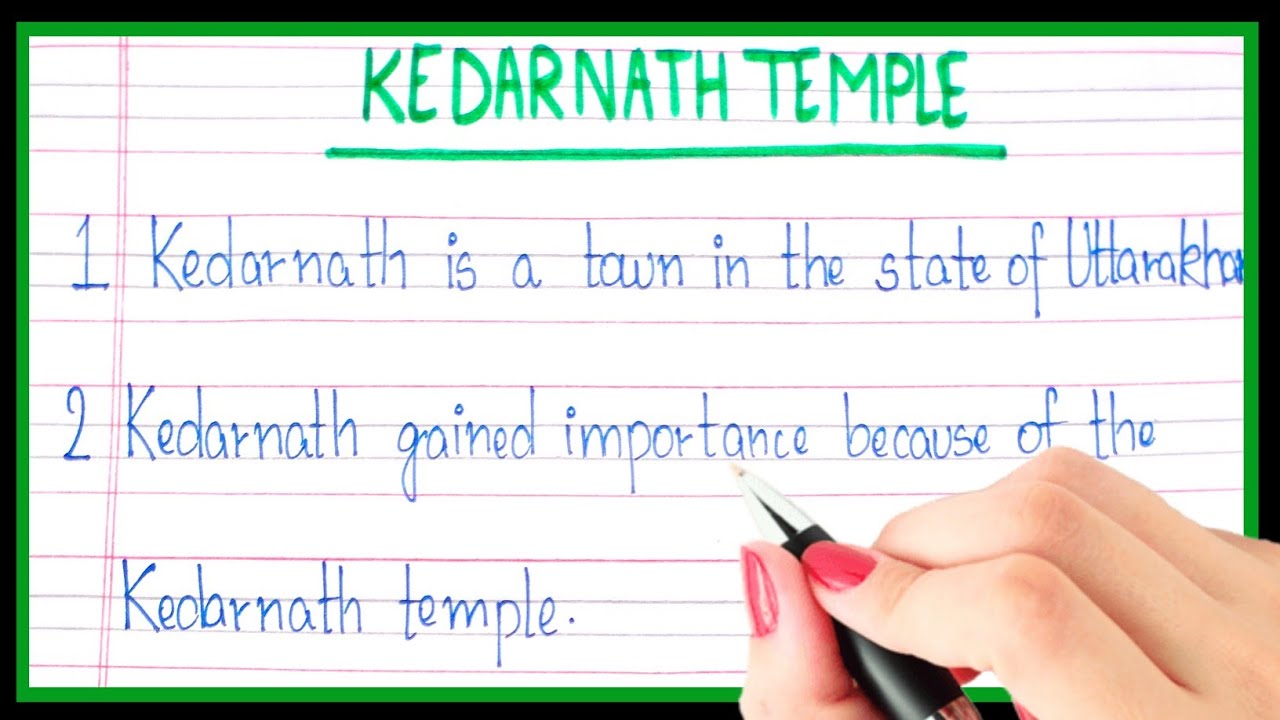 KEDARNATH TEMPLE
1 Kedarnath is a town in the state of Uttarakhan
2 Kedarnath gained importance because of the
Kedarnath temple.